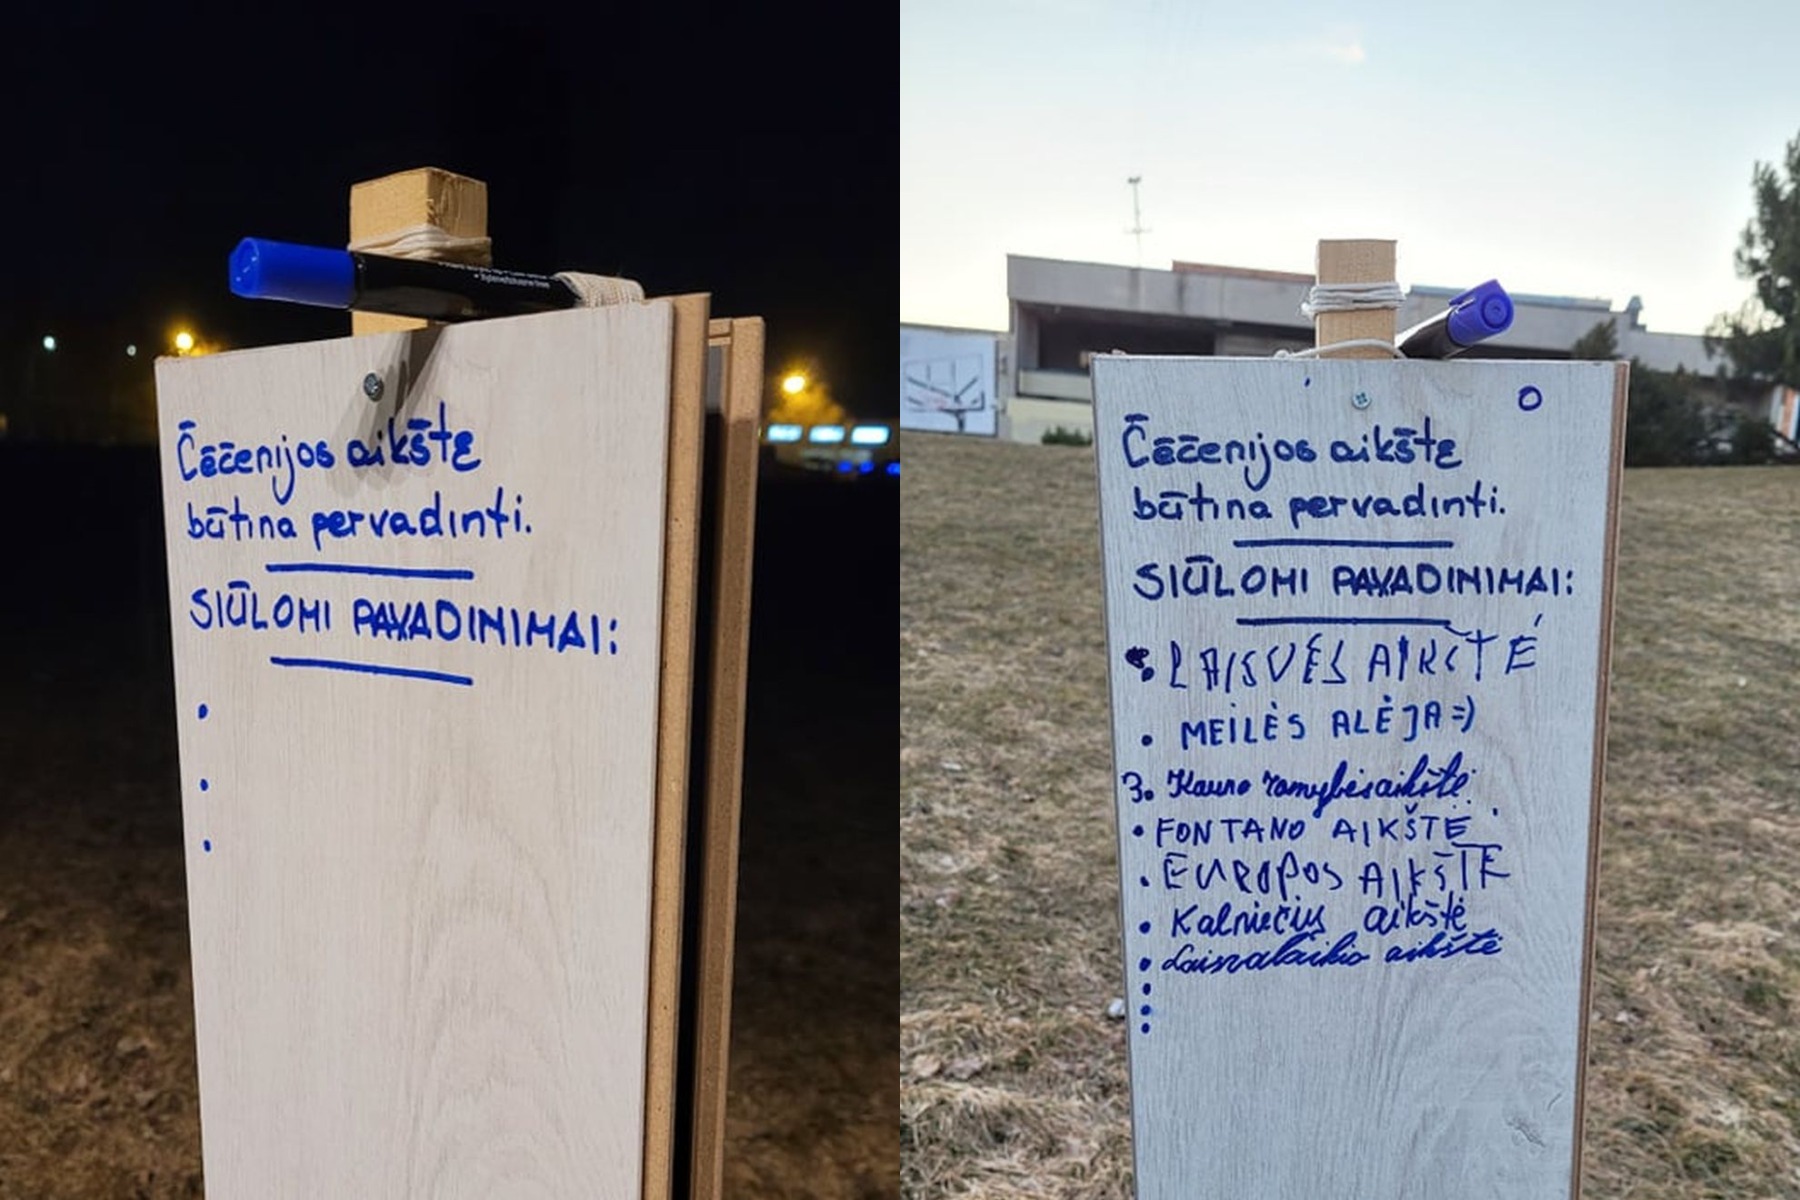 Čečenijos aikšte
būtina pervadinti.
SIŪLOMI PAVADINIMAI:
Čečenijos aikšte
būtina pervadinti.
SIŪLOMI PAVADINIMAI:
• LAISVĖS AIKŠTĖ
• MEILĖS ALĖJA =)
3. Kauno ramybės aikštė
• FONTANO AIKŠTĖ
• EUROPOS AIKŠTE
• Kalniečių aikštė
• Laisvalaikio aikštė